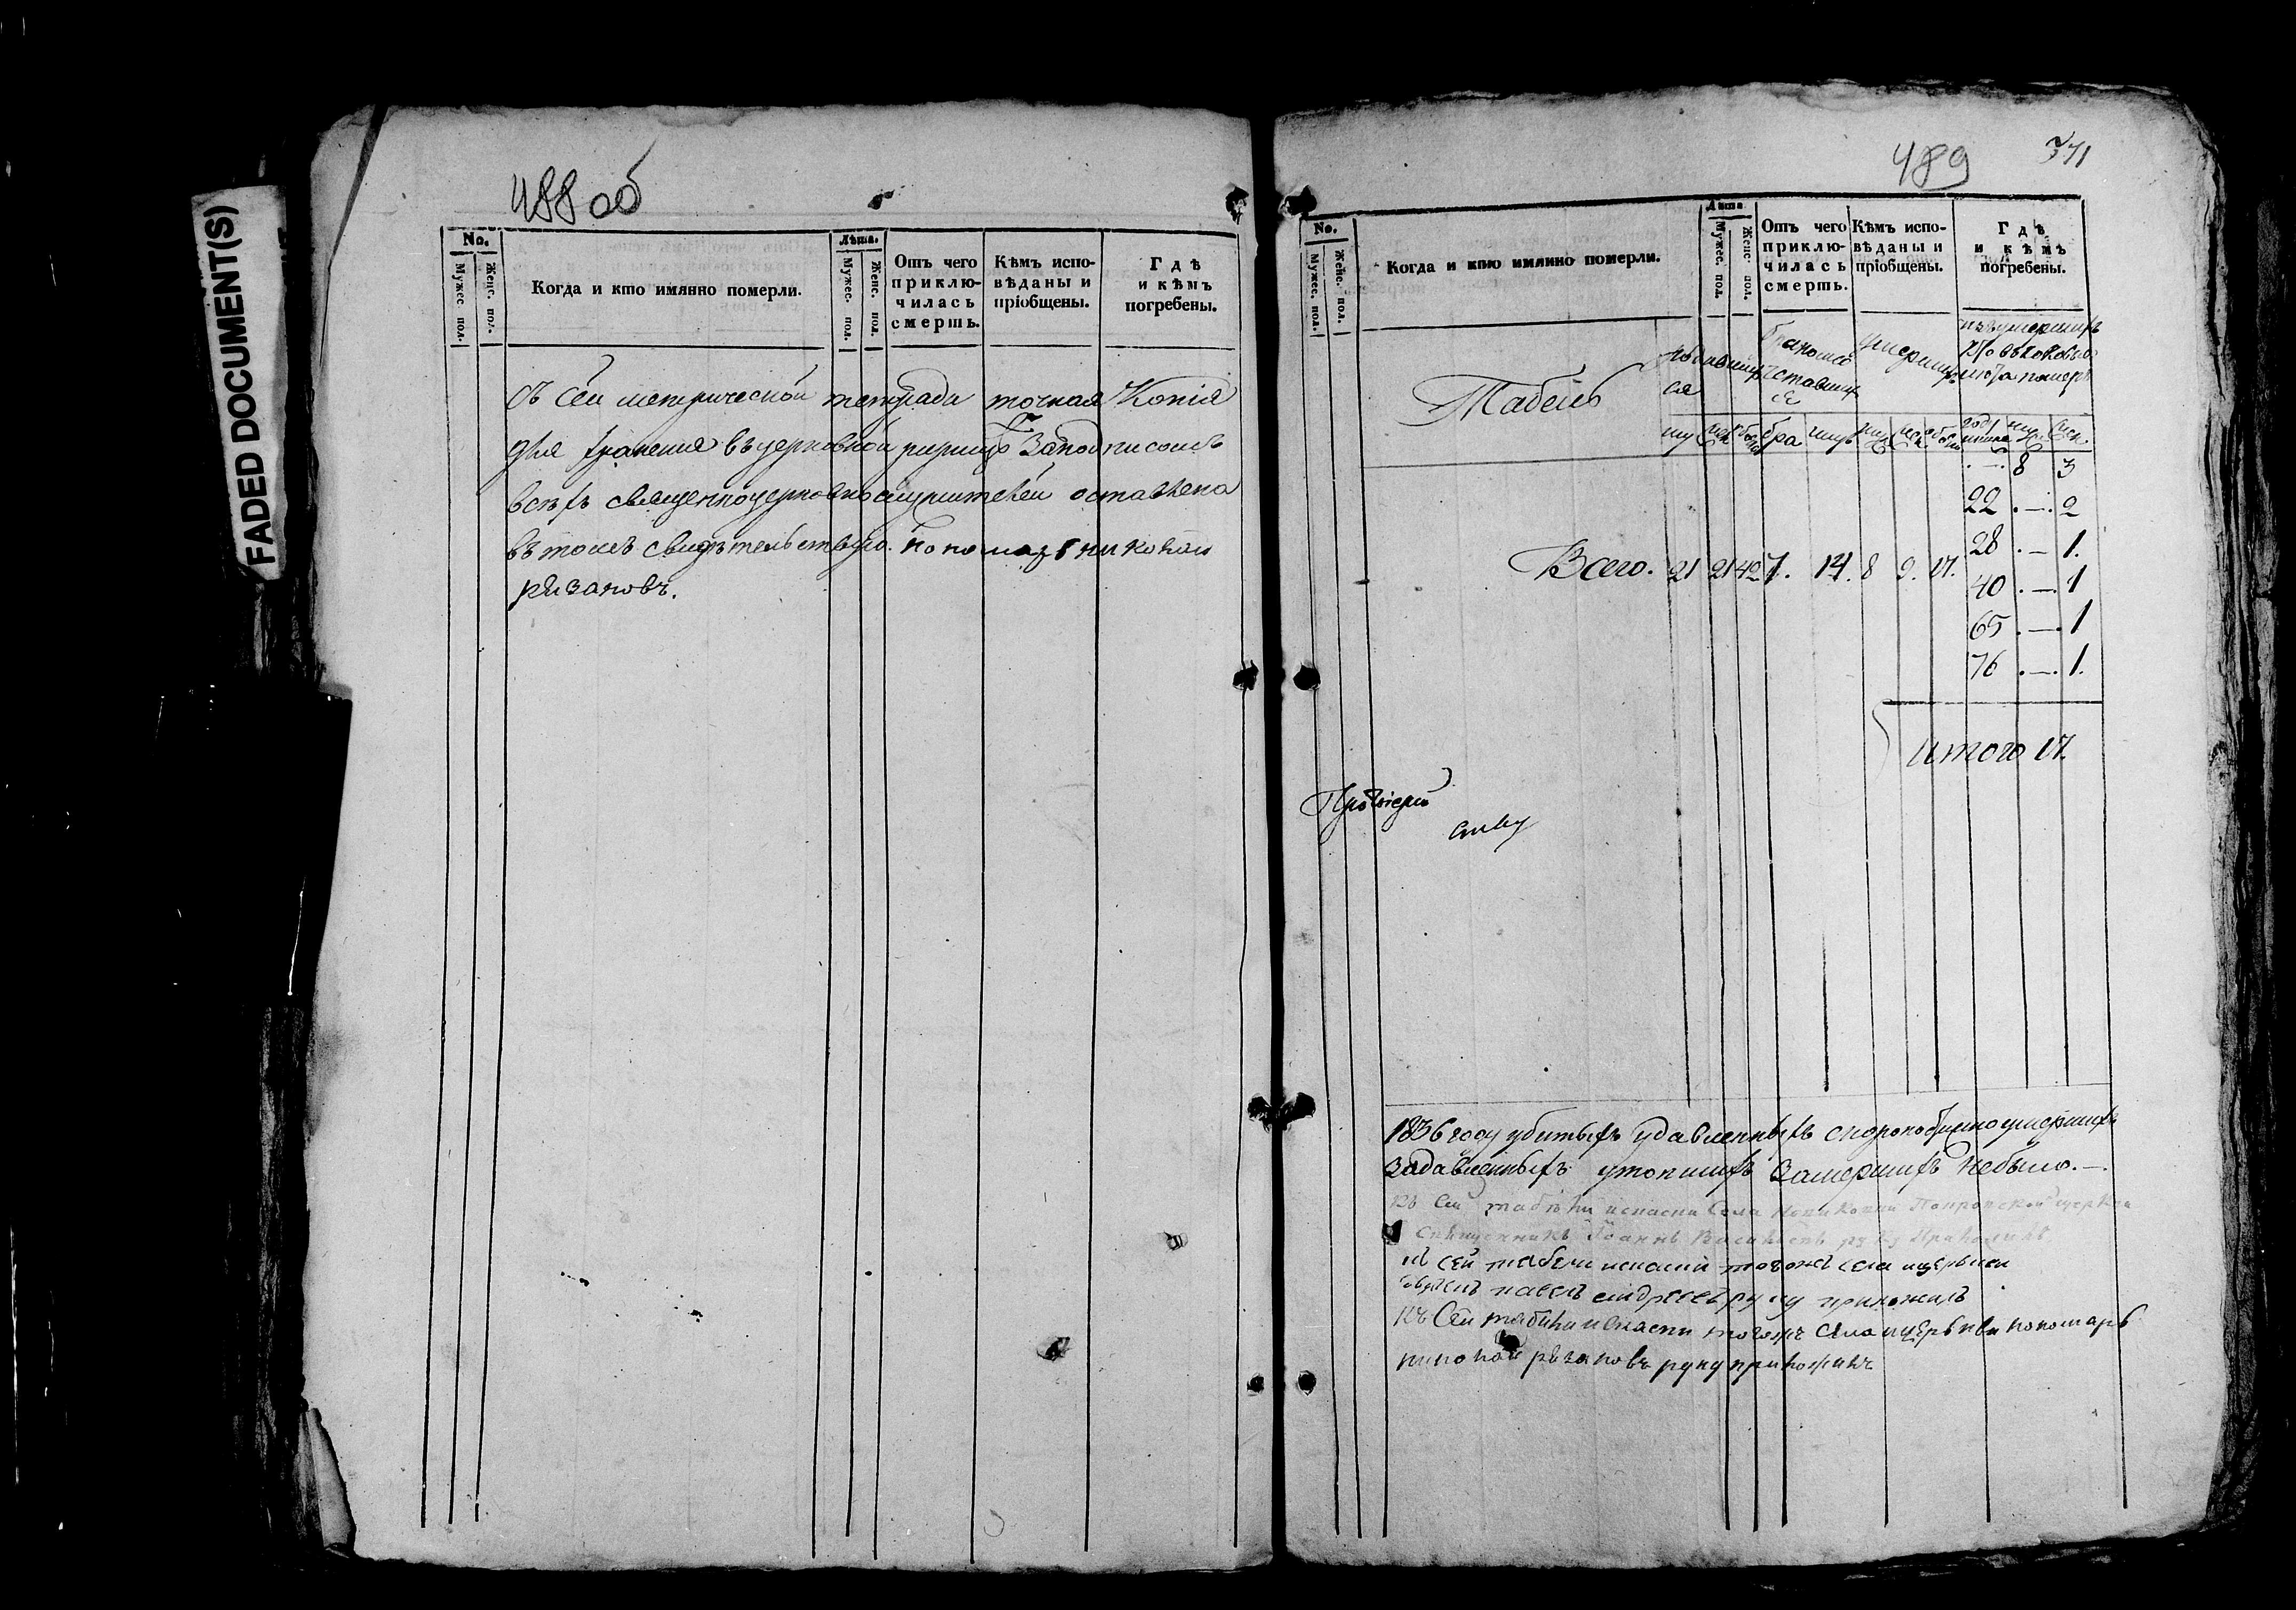 FADED DOCUMENT(S)
488 об
No.
Мужес. пол.
Женс. пол.
Когда и кто имянно померли.
Лѣта.
Мужес. пол.
Женс. пол.
Отъ чего приклю-
чилась
смерть.
Кѣмъ испо-
вѣданы и
пріобщены.
Гдѣ
и кѣмъ
погребены.
Съ сей метрической тетрада точная копія
для храненія въ церковной ризницѣ За подписомъ
всѣхъ священноцерковнослужителей оставлена
въ томъ свидѣтельствую. Пономарь Никонаи
Рязановъ.
489
371
No.
Мужес. пол.
Женс. пол.
Когда и кто имянно померли.
Лѣта
Мужес. пол.
Женс. пол.
Отъ чего
приклю-
чилась
смерть.
Кѣмъ испо-
вѣданы и
пріобщены.
Гдѣ
и кѣмъ
погребены.
Табель
родивших
ся
бракомсо
четавших
ся
умерших
изъ умершихъ
кто въ каковых
лѣта померъ
8 3
22 . — . 2
28 . — 1.
Всего. 21 21 42 7. 14. 8 9. 17.
40 . — . 1
65 . — . 1
76 . — . 1.
итого 17.
Протоіерей
1836 году убитыхъ удавленныхъ скоропостижно умершихъ
Задавленныхъ утопшихъ Замершихъ небыло. —
Къ сей табѣли Покровской церкви
Священникъ Іоаннъ руку Приложилъ
Къ сей табели тогожъ села церкви
павелъ андреевъ руку приложилъ
Къ Сей табели тогожъ Села церькви пономарь
Никонаи Рязановъ руку приложилъ